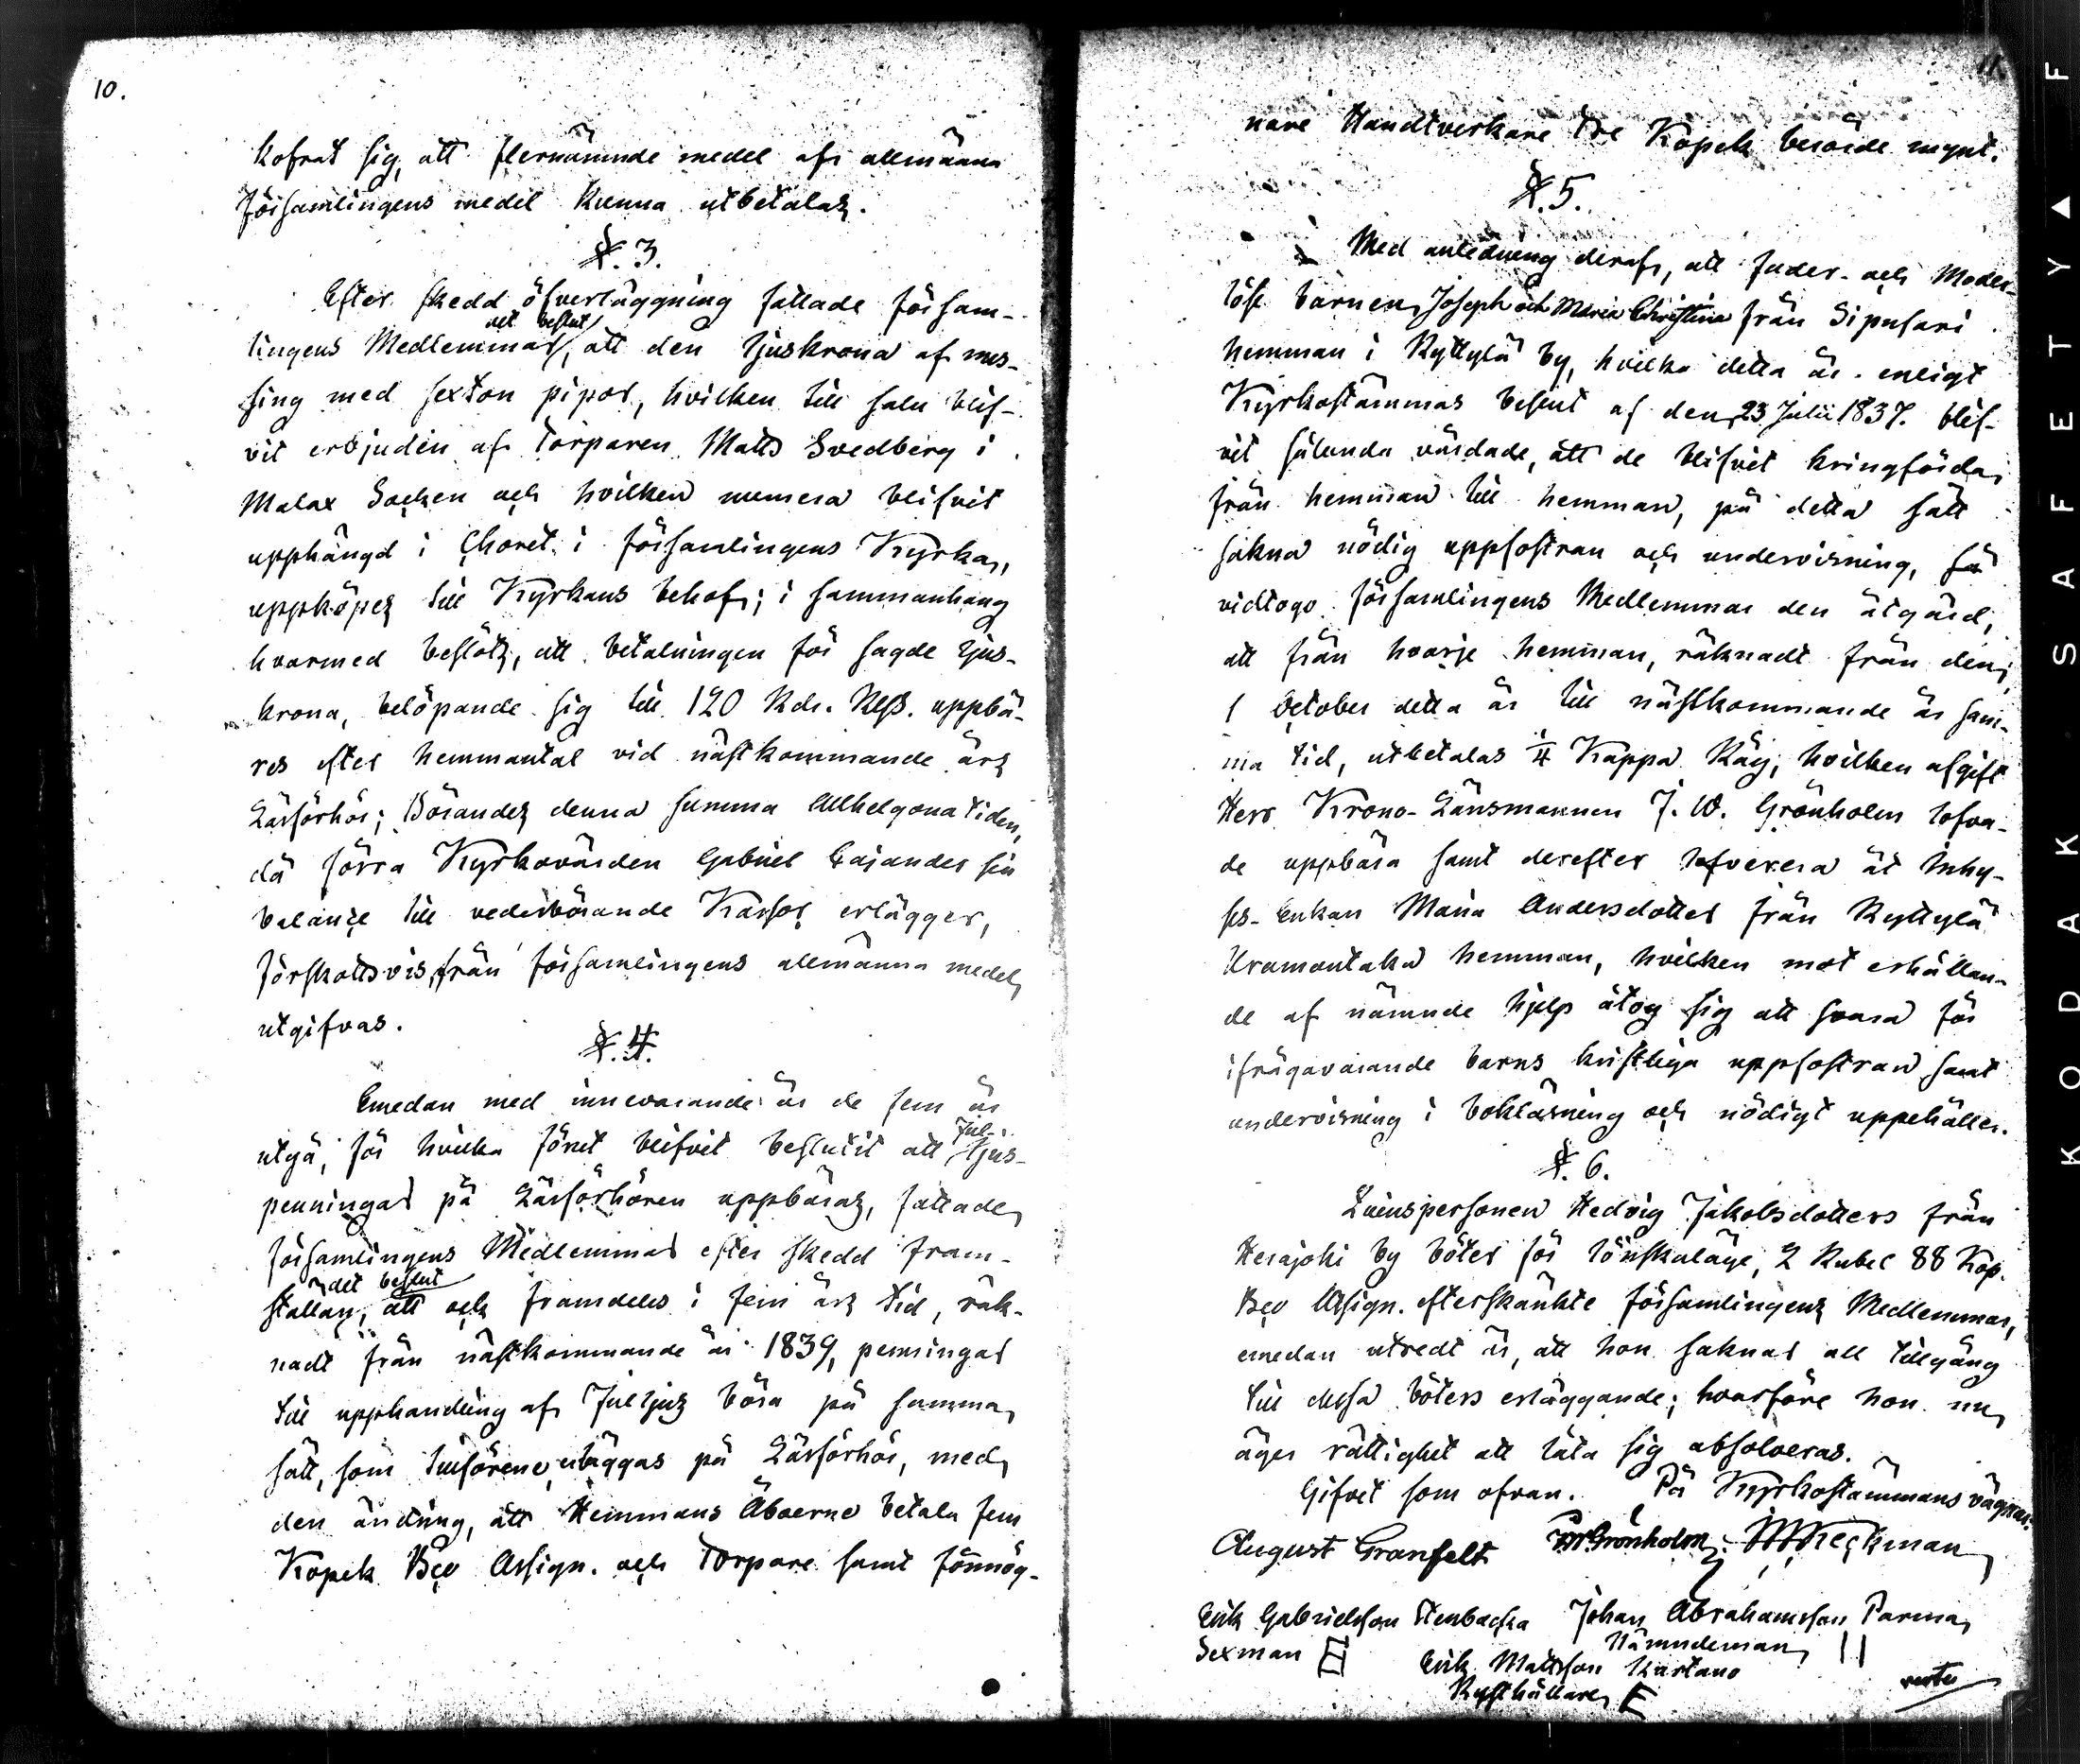 10.
kofrat sig, att flernämnde medel af allmänna
Församlingens medel kunna utbetalas.
§. 3.
Efter skedd öfverläggning fattade försam-
lingens Medlemmar det beslut, att den ljuskrona af mes-
sing med sexton pipor, hvilken till salu blif-
vit erbjuden af Torparen Matts Svedberg i
Malax Socken och hvilken numera blifvit
upphängd i Choret i församlingens Kyrka,
uppköpes till Kyrkans behof; i sammanhang
hvarmed beslöts, att betalningen för sagde ljus-
krona, belöpande sig till 120 Rdr. Rgs. uppbä-
res efter hemmantal vid nästkommande års
Läsförhör; Börandes denna summa Allhelgona tiden,
då förra Kyrkovärden Gabriel Cajander sin
balance till vederbörande Kassor erlägger,
förskottsvis, från församlingens allmänna medel
utgifvas.
§. 4.
Emedan med innevarande år de fem år
utgå, för hvilka förut blifvit beslutit att Jul-ljus-
penningar på Läsförhören uppbäras, fattade
församlingens Medlemmar efter skedd fram-
ställan, det beslut att och framdeles i fem års tid, räk-
nadt från nästkommande år 1839, penningar
till upphandling af Julljus böra på samma
sätt, som tillförene, erläggas på Läsförhör, med
den ändring, att Hemmans Åboerne betala fem
Kopek Bco Assign. och Torpare samt förmög-
11.
nare Handtverkare tre Kopek berörde mynt.
§. 5.
Med anledning deraf, att fader- och Moder-
löse barnen Joseph och Maria Christina från Sipusari
hemman i Kyttylä by, hvilka detta år enligt
Kyrkostämmas beslut af den 23 Julii 1837. blif-
vit sålunda vårdade, att de blifvit kringförda
från hemman till hemman, på detta sätt
sakna nödig uppfostran och undervisning, så
vidtogo församlingens Medlemmar den åtgärd,
att från hvarje hemman, räknadt från den
1 October detta år till nästkommande år sam-
ma tid, utbetalas 1/4 Kappa Råg, hvilken afgift
Herr Krono-Länsmannen J. W. Grönholm lofva-
de uppbära samt derefter lefverera åt Inhy-
ses-Enkan Maria Andersdotter från Kyttylä
Uramontaka hemman, hvilken mot erhållan-
de af nämnde hjelp åtog sig att svara för
ifrågavarande barns kristliga uppfostran samt
undervisning i bokläsning och nödigt uppehälle.
§. 6.
Qvinspersonen Hedvig Jakobsdotters från
Herajoki by böter för lönskaläge, 2 Rubel 88 Kop.
Bco Assign. efterskänkte församlingens Medlemmar,
emedan utredt är, att hon saknar all tillgång
till dessa böters erläggande; hvarföre hon nu
äger rättighet att låta sig absolveras.
Gifvet som ofvan. På Kyrkostämmans vägnar.
August Granfelt JW Grönholm
Erik Gabrielsson Stenbacka Johan Abrahamsson Parma
Sexman Nämndeman
Erik Mattsson Kartano
Rusthållare
verte
KODAK SAFETY F